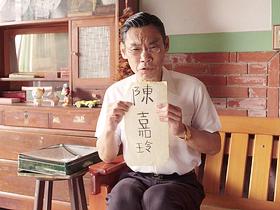 陳嘉玲